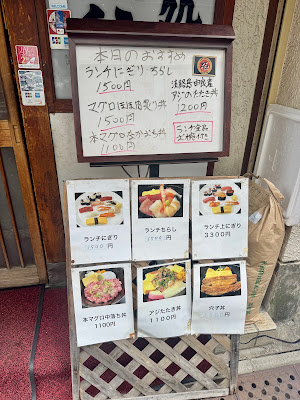 本日のおすすめ
ランチにぎり ちらし
1500円
1500円
本マグロなかおち丼
1100円
淡路島由良産
アジのたたき丼
1200円
ランチ全品
ランチにぎり
1500円
ランチちらし
1500円
ランチ上にぎり
3300円
本マグロ中落ち丼
1100円
アジたたき丼
1100円
穴子丼